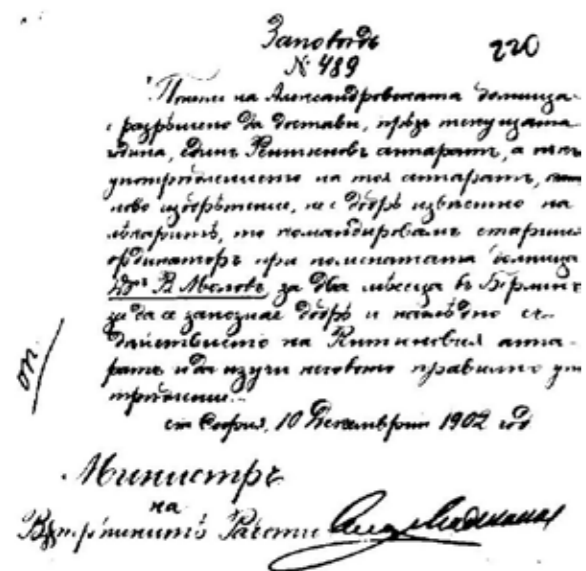 Заповѣдь
220
№ 489
Понеже на Александровската болница
е разрѣшено да достави, прѣзъ текущата
година, единъ Рентгеновъ аппаратъ, а
употрѣблението на тоя аппаратъ,
ново изобрѣтение, не е добрѣ извѣстно на
лѣкаритѣ, то командировамъ старшия
ординаторъ при помѣнатата болница
Дръ В. Моловъ за два мѣсеца въ Берлинъ
за да се запознае добрѣ и нагледно съ
дѣйствието на Рентгеновия аппа-
ратъ и да изучи неговото правилно упо
трѣбление.
оп.
гр София, 10 Декемврий 1902 год
Министръ
на
Вѫтрѣшнитѣ Работи